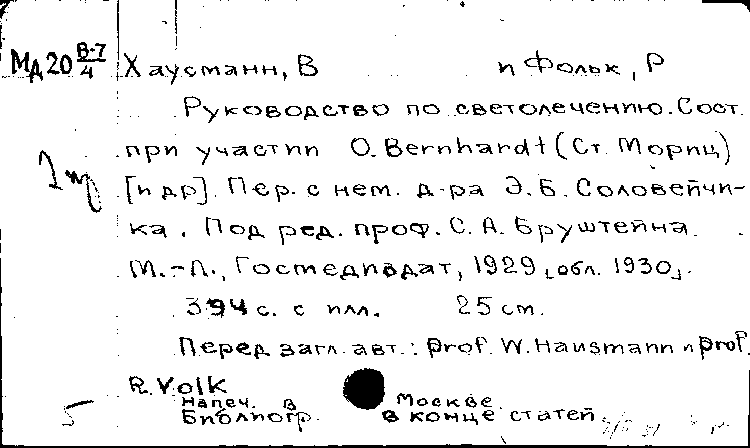 Мд20 В-7/4 Хаусманн, В и Фольк, Р
Руководство по светолечению. Сост.
при участии О. Bernhardt (Ст. Мориц)
[и др]. Пер. с нем. д-ра Э. Б. Соловейчи-
ка. Под ред. проф. С. А. Бруштейна.
М.-Л., Госмедиздат, 1929 [обл. 1930].
394 с. с илл. 25 cm.
Перед загл. авт.: Prof. W. Hausmann и prof.
R. Volk
Напеч. в Москве
Библиогр. в конце статей.
5